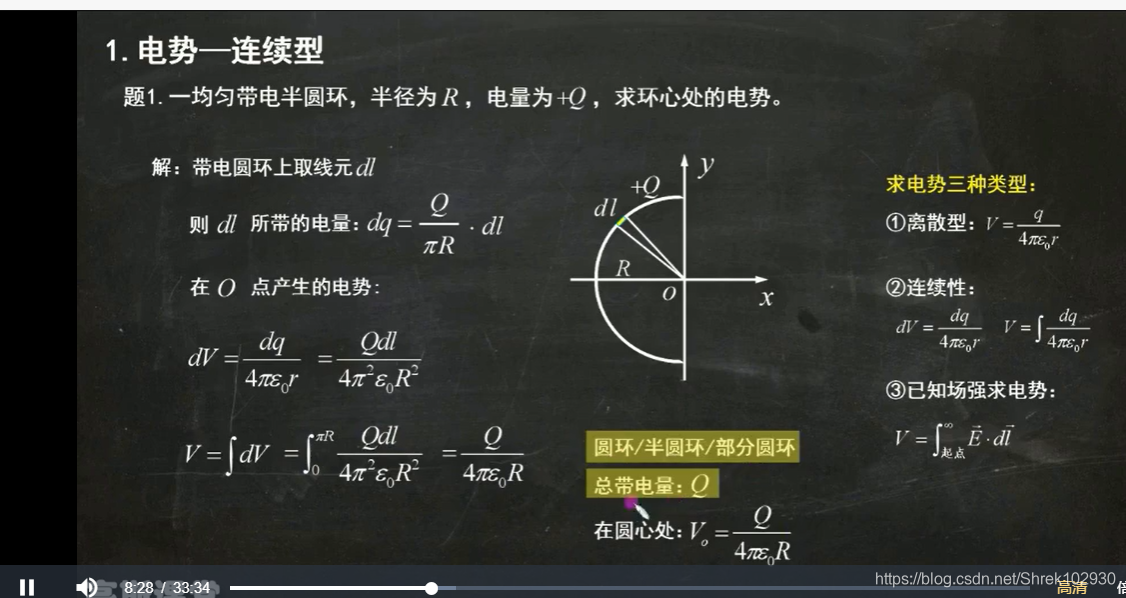 1. 电势—连续型
题1. 一均匀带电半圆环，半径为R，电量为+Q，求环心处的电势。
解：带电圆环上取线元dl
则 dl 所带的电量：dq = Q/πR · dl
在 O 点产生的电势：
dV = dq/4πε₀r = Qdl/4π²ε₀R²
V = ∫dV = ∫₀^πR Qdl/4π²ε₀R² = Q/4πε₀R
y
+Q
dl
R
O
x
圆环/半圆环/部分圆环
总带电量：Q
在圆心处：Vₒ = Q/4πε₀R
求电势三种类型：
①离散型：V = q/4πε₀r
②连续性：
dV = dq/4πε₀r V = ∫ dq/4πε₀r
③已知场强求电势：
V = ∫起点^∞ E⃗ · dl⃗
8:28 / 33:34
https://blog.csdn.net/Shrek102930
高清
倍